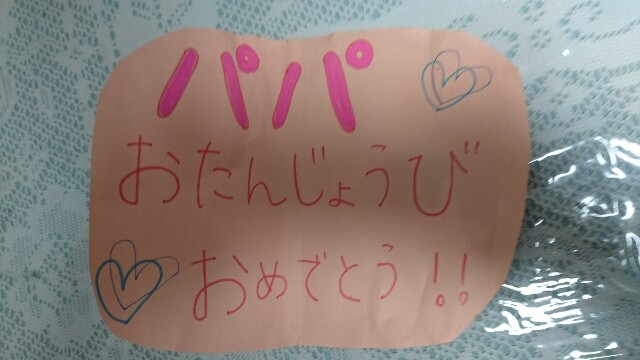 パパ
おたんじょうび
おめでとう!!